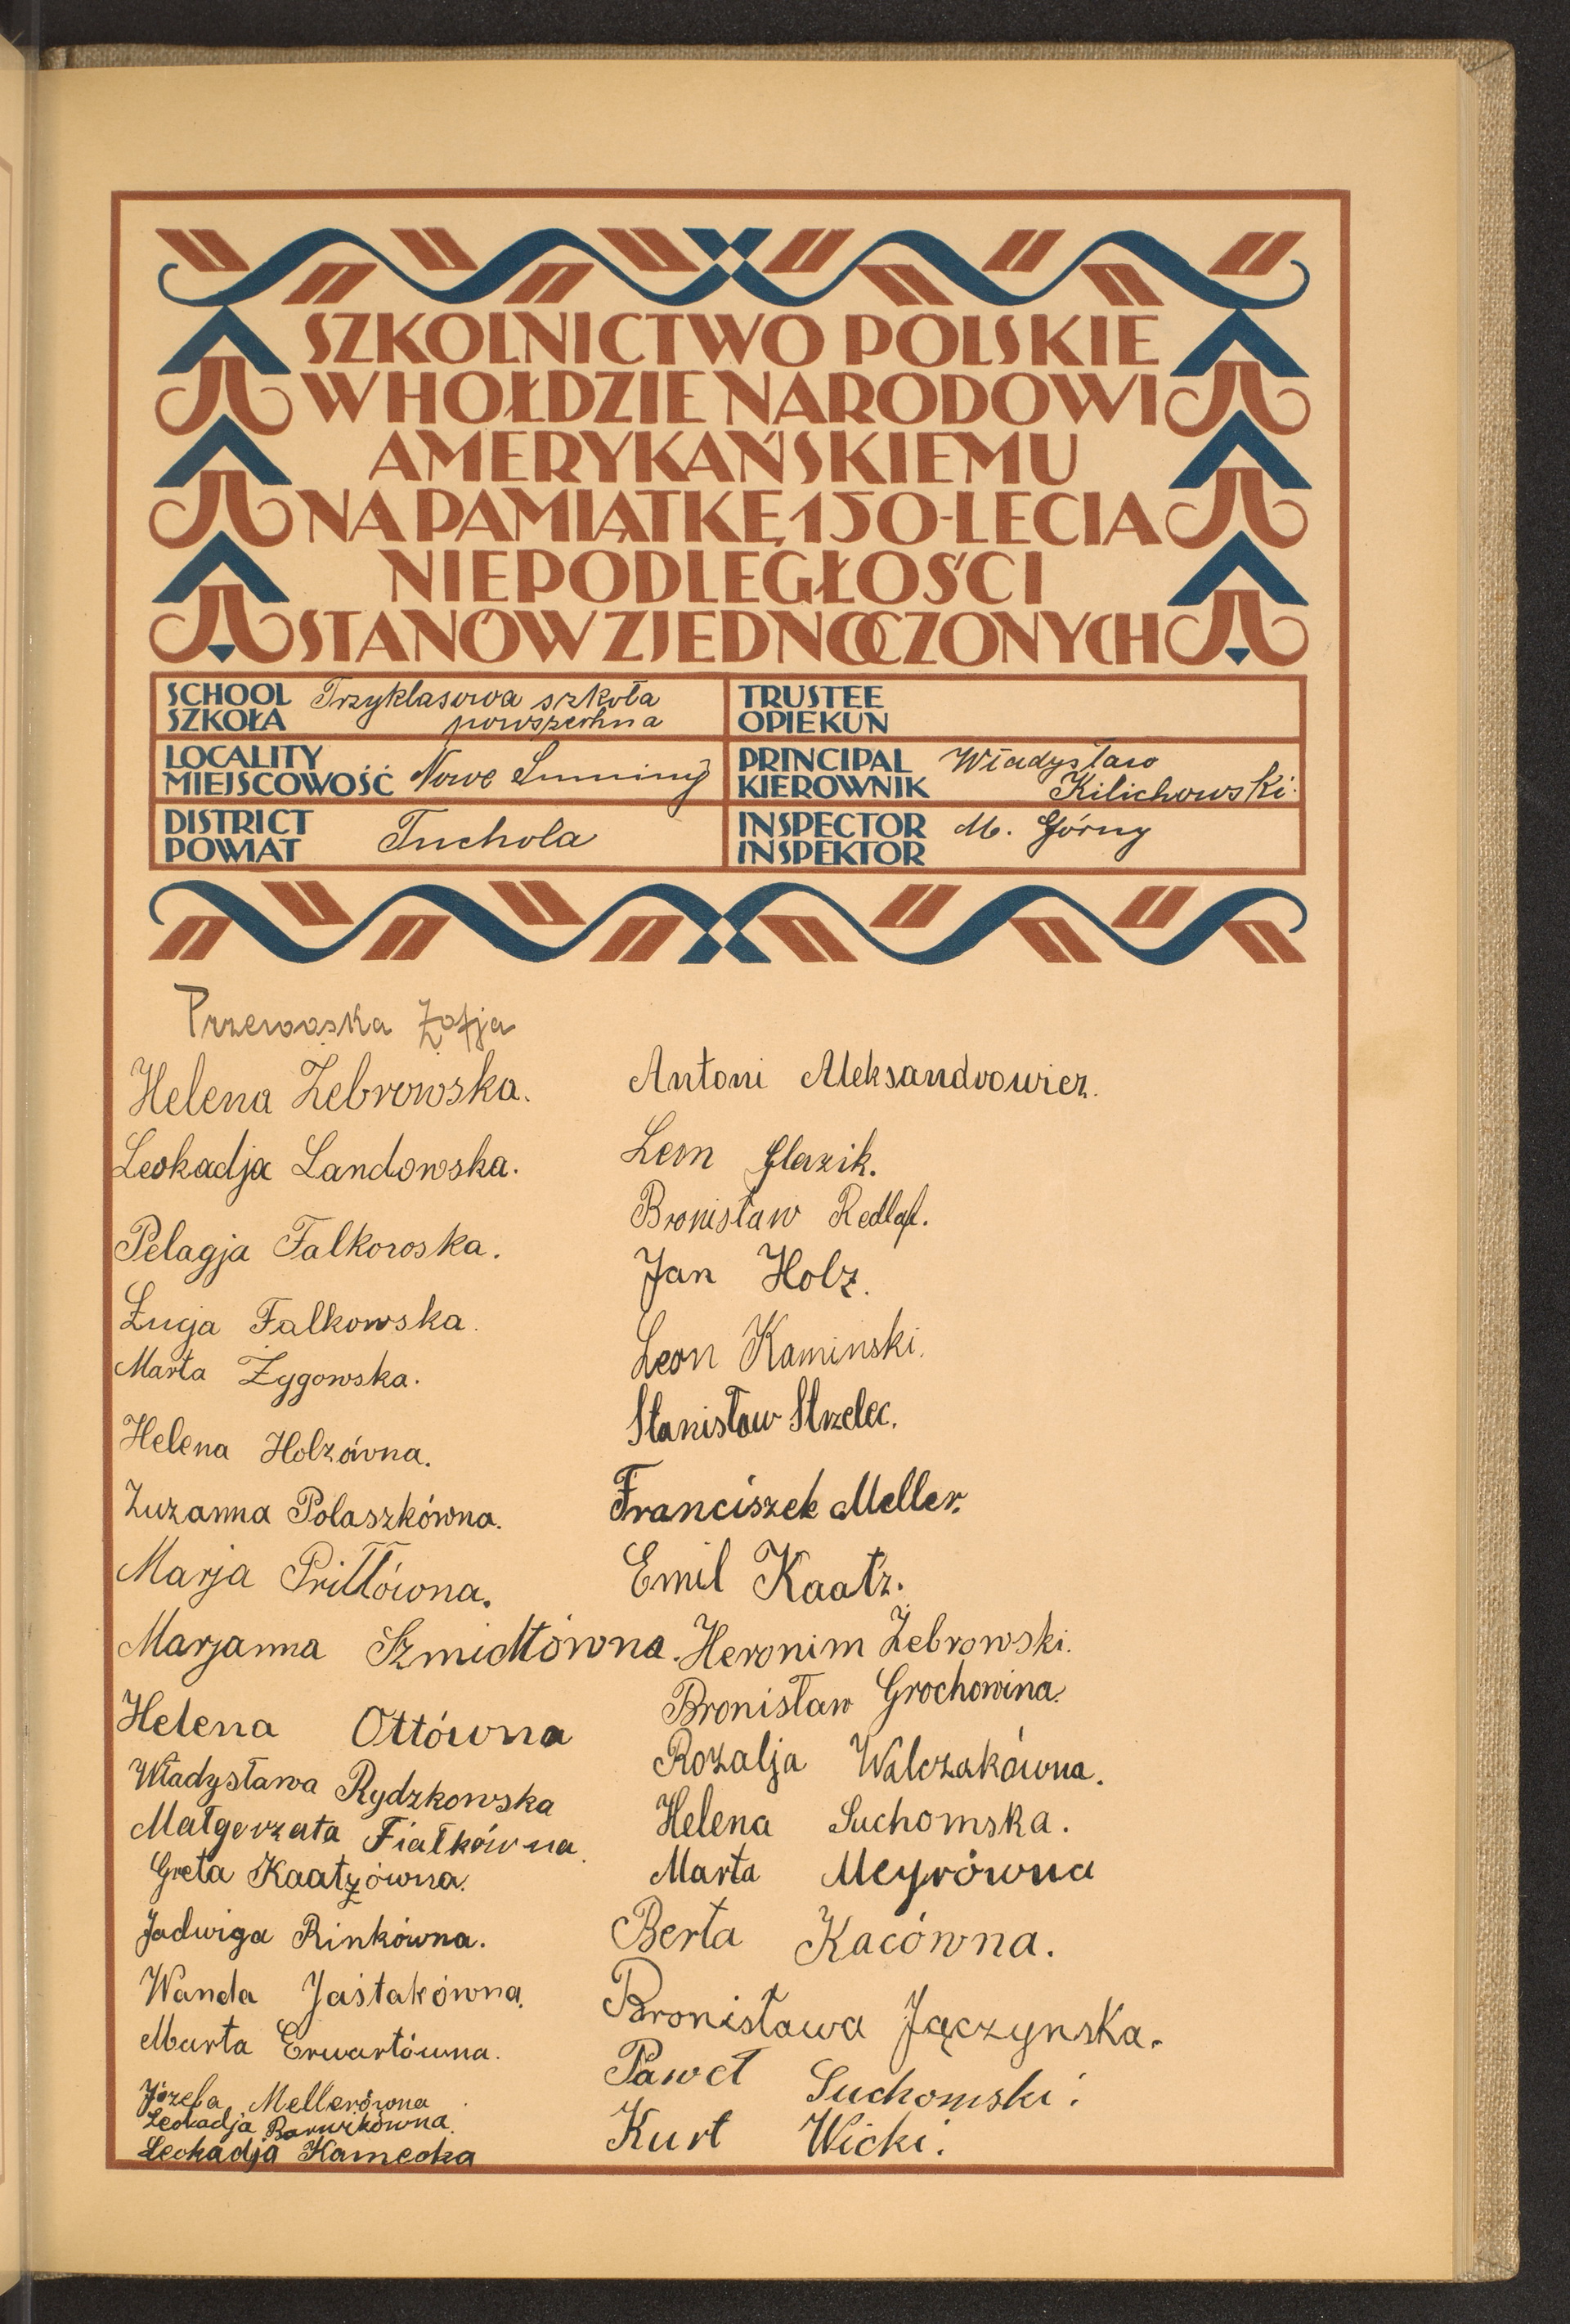 SZKOLNICTWO POLSKIE
W HOŁDZIE NARODOWI
AMERYKAŃSKIEMU
NA PAMIĄTKĘ 150-LECIA
NIEPODLEGŁOŚCI
STANÓW ZJEDNOCZONYCH
SCHOOL
SZKOŁA
Trzyklasowa szkoła
powszechna
TRUSTEE
OPIEKUN
LOCALITY
MIEJSCOWOŚĆ
Nowe Suminy
PRINCIPAL
KIEROWNIK
Władysław
Kilichowski.
DISTRICT
POWIAT
Tuchola
INSPECTOR
INSPEKTOR
M. Górny
Przewoska Zofja
Helena Żebrowska.
Leokadja Landowska.
Pelagja Falkowska.
Łucja Falkowska.
Marta Zygowska.
Helena Holzówna.
Zuzanna Polaszkówna.
Marja Prillówna.
Marjanna Szmidtówna.
Helena Ottówna
Władysława Rydzkowska
Małgorzata Fiałkówna.
Greta Kaatzówna.
Jadwiga Rinkówna.
Wanda Jaśtakówna.
Marta Erwartówna.
Józefa Mellerówna
Leokadja Barwikówna.
Leokadja Kamecka
Antoni Aleksandrowicz.
Leon Glazik.
Bronisław
Jan Holz.
Leon Kaminski.
Stanisław Strzelec.
Franciszek Meller.
Emil Kaatz.
Heronim Żebrowski.
Bronisław Grochowina.
Rozalja Walczakówna.
Helena Suchomska.
Marta Meyrówna
Berta Kacówna.
Bronisława Jączynska.
Paweł Suchomski.
Kurt Wicki.